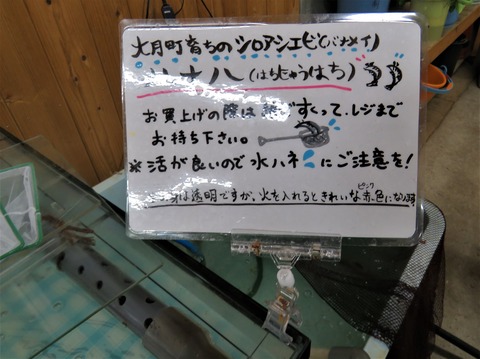 大月町育ちのシロアシエビ(バナメイ)
(はりきゅうはち)
お買上げの際は網ですくって、レジまで
お持ち下さい。
※活が良いので水ハネにご注意を!
身は透明ですが、火を入れるときれいな赤色になります
ピンク